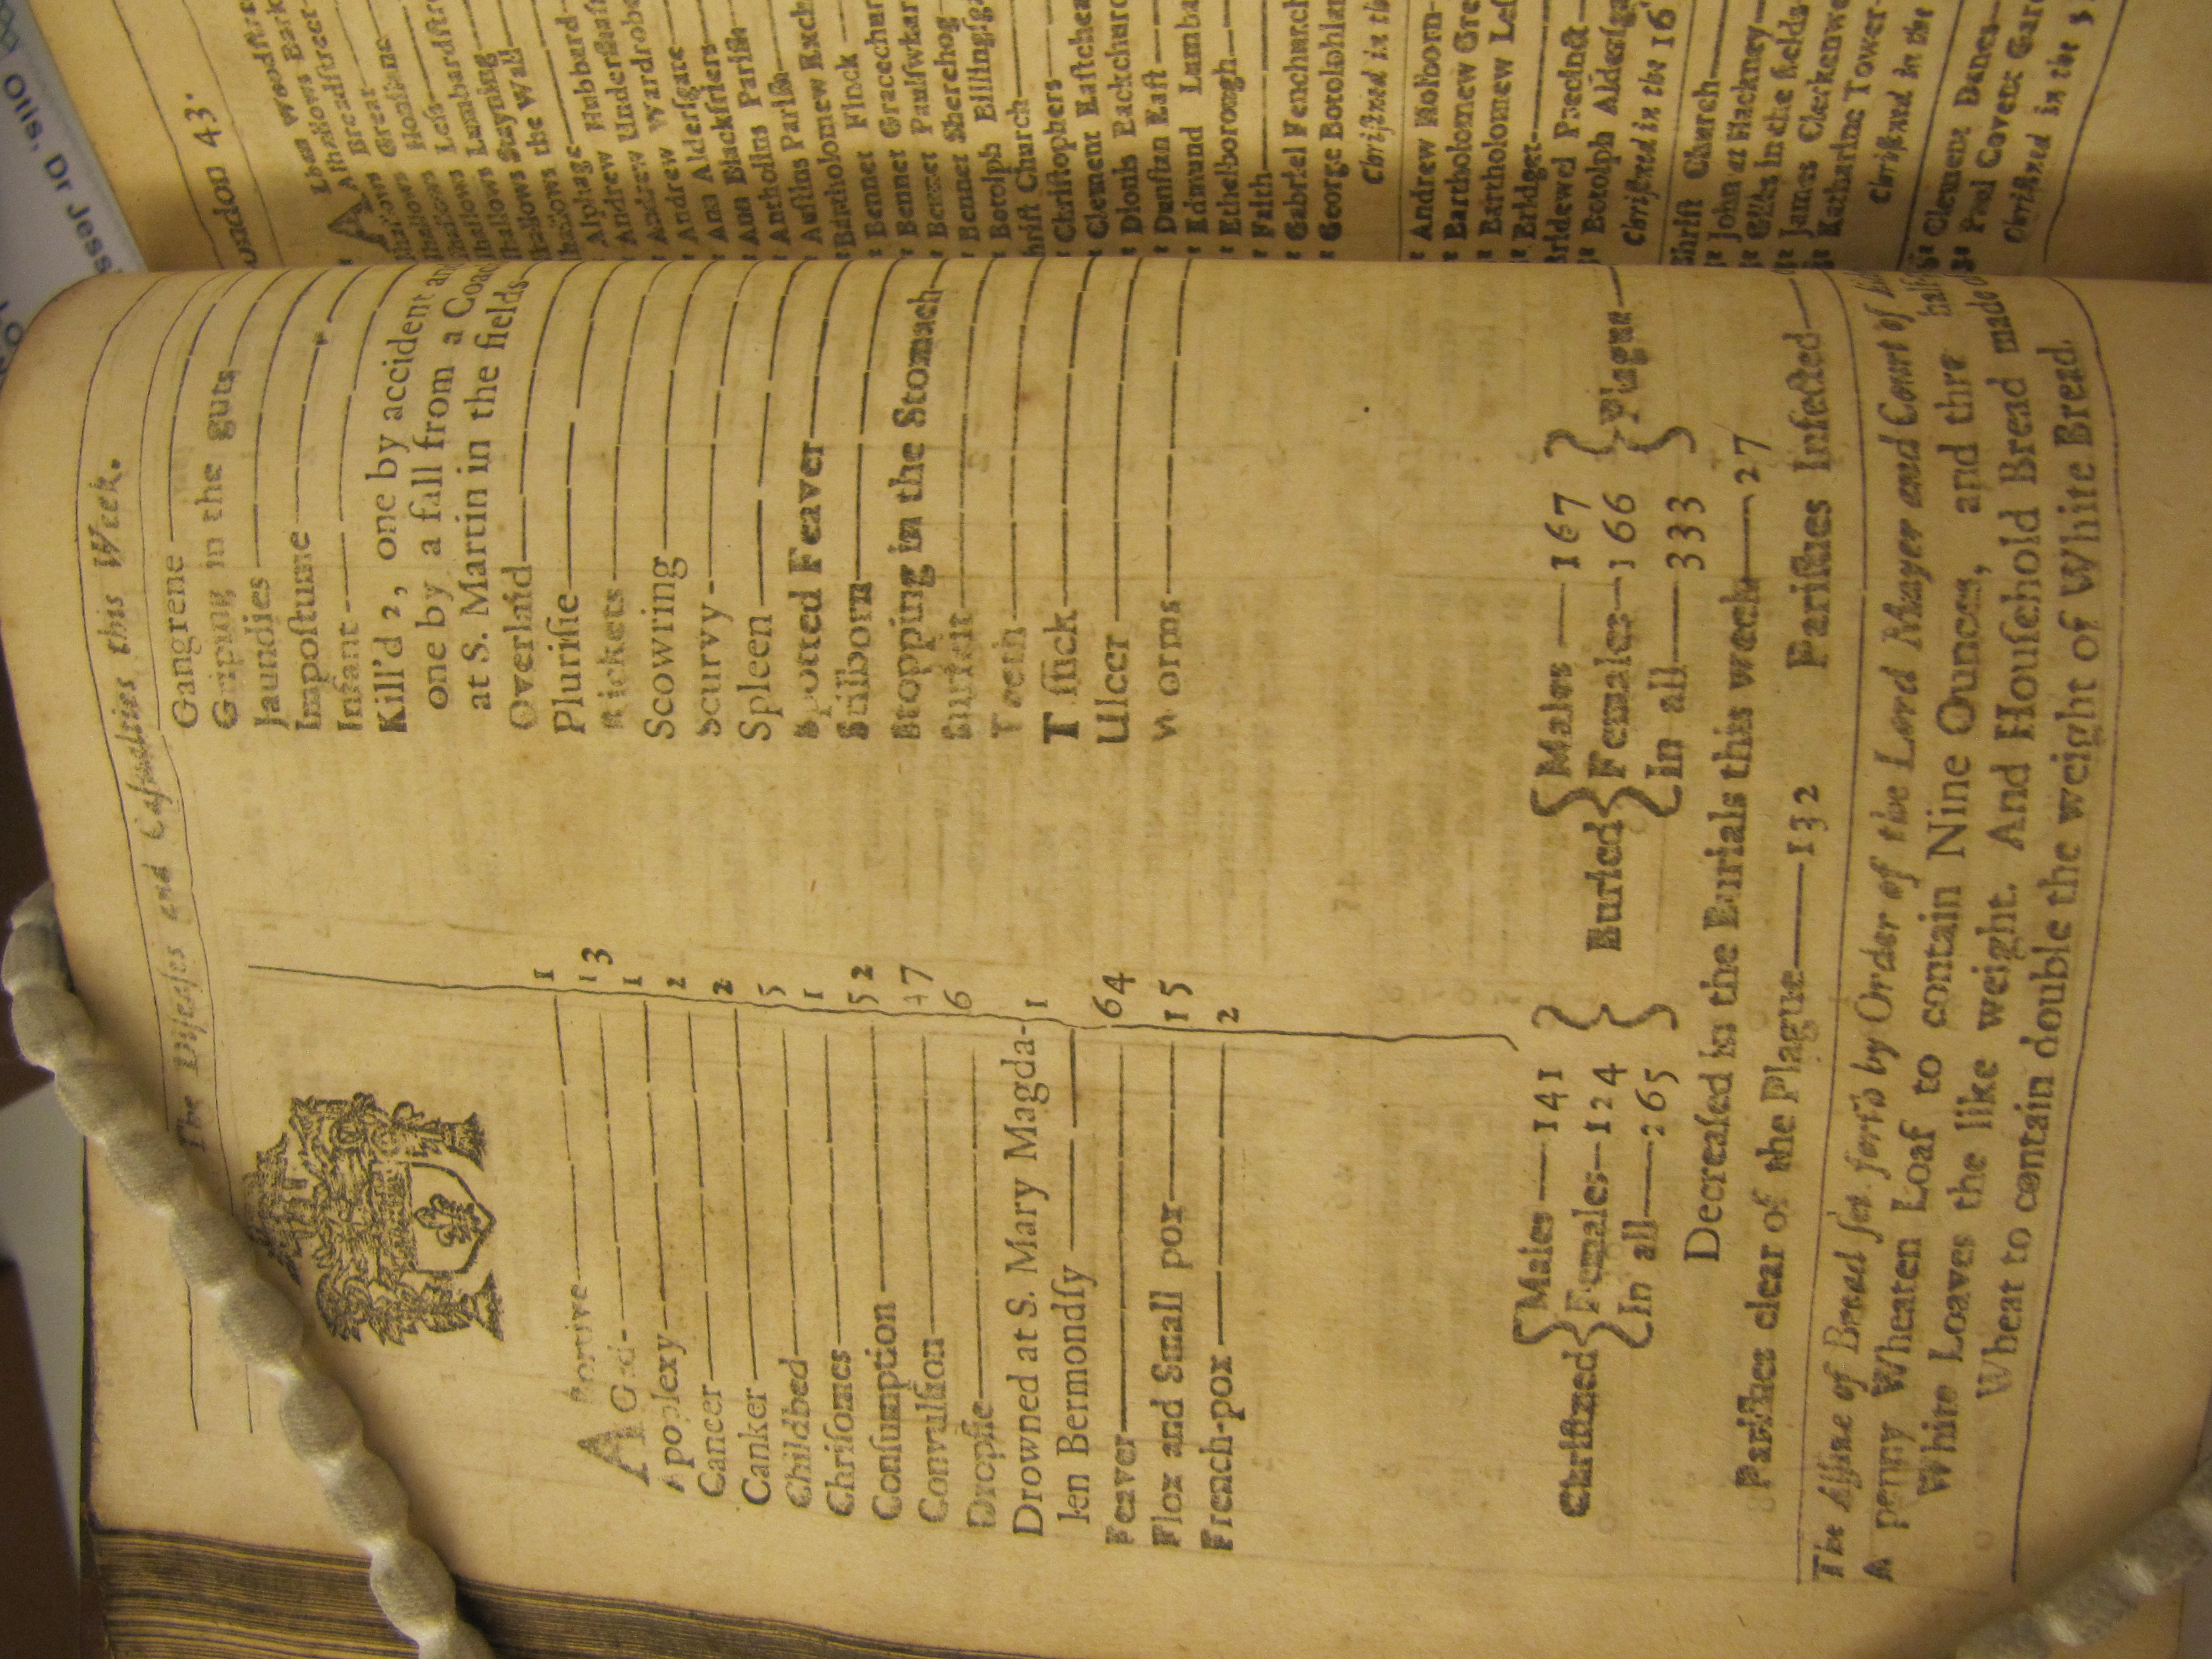 The Diseases and Casualties this Week.
Abortive 1
AGed 13
Apoplexy 2
Cancer 2
Canker 2
Childbed 5
Chrisomes 1
Consumption 52
Convulsion
Dropsie 6
Drowned at S. Mary Magda-
len Bermondsy 1
Feaver 64
Flox and Small pox 15
French-pox 2
Gangrene
Griping in the guts
Jaundies
Impostume
Infant
Kill'd 2, one by accident
one by a fall from a
at S. Martin in the fields
Overlaid
Plurisie
Rickets
Scowring
Scurvy
Spleen
Spotted Feaver
Stilborn
Stopping in the Stomach
Surfeit
Teeth
Tissick
Ulcer
Worms
Christned { Males — 141
Females — 124
In all — 265 }
Buried { Males — 167
Females — 166
In all — 333 } Plague —
Decreased in the Burials this week — 27
Parishes clear of the Plague — 132 Parishes Infected —
The Assize of Bread set forth by Order of the Lord Mayor and Court of
A penny Wheaten Loaf to contain Nine Ounces, and three half
White Loaves the like weight. And Houshold Bread made
Wheat to contain double the weight of White Bread.
London 43.
Alban
Alhallows
Alhallows Breadstreet
Alhallows Great
Alhallows
Alhallows Less
Alhallows Lumbardstr
Alhallows Stayning
Alhallows the Wall
Alphage
Andrew Hubbard
Andrew
Andrew Wardrobe
Ann Aldersgate
Ann Blackfriers
Antholins Parish
Austins Parish
Bartholomew Exch
Bennet Finck
Bennet Gracechur
Bennet Paulswhar
Bennet Sherehog
Botolph Billingsga
hrist Church
Christophers
Clement Eastchea
Dionis Backchurc
Dunstan East
Edmund Lumba
Ethelborough
Faith
Gabriel Fenchurch
George Botolphlan
Christned in th
Andrew Holborn
Bartholomew Gre
Bartholomew Les
Bridget
Bridewel Precinct
Botolph Aldersga
Christned in the 16
hrist Church
John at Hackney
Giles in the fields
James Clerkenwe
Katharine Tower
Christned in the
Clement Danes
Paul Covent Gar
Christned in the 5
Otis, Dr Jess